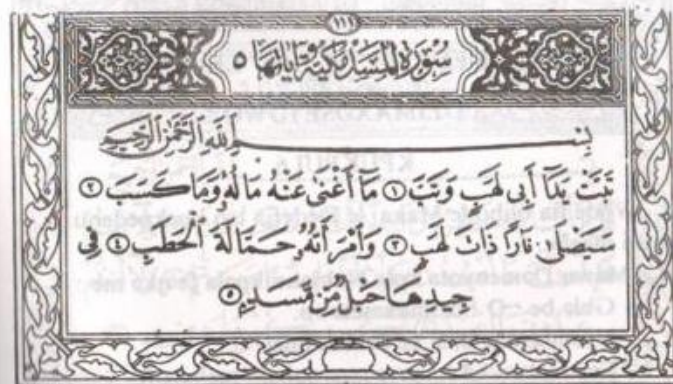 ١١١
سُورَةُ المَسَد مَكِّيَّة وَآيَاتُهَا ٥
بِسْمِ اللَّهِ الرَّحْمَٰنِ الرَّحِيمِ
تَبَّتْ يَدَا أَبِي لَهَبٍ وَتَبَّ ١ مَا أَغْنَىٰ عَنْهُ مَالُهُ وَمَا كَسَبَ ٢
سَيَصْلَىٰ نَارًا ذَاتَ لَهَبٍ ٣ وَامْرَأَتُهُ حَمَّالَةَ الْحَطَبِ ٤ فِي
جِيدِهَا حَبْلٌ مِّن مَّسَدٍ ٥